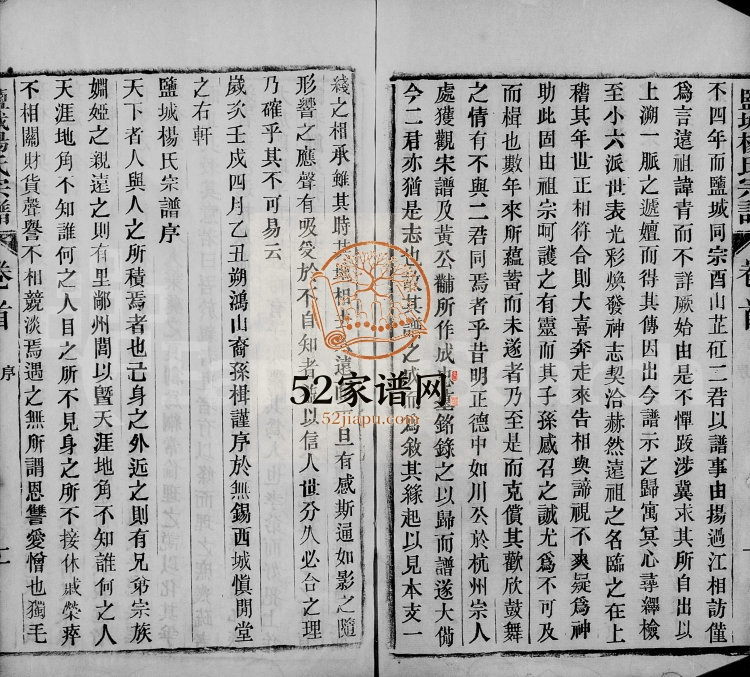 鹽城楊氏宗譜
卷首
序
不四年而鹽城同宗酉山芷矼二君以譜事由揚過江相訪僅
爲言遠祖諱青而不詳厥始由是不憚跋涉冀求其所自出以
上溯一脈之遞嬗而得其傳因出今譜示之歸寓冥心尋繹檢
至小六派世表光彩煥發神志契洽赫然遠祖之名臨之在上
稽其年世正相符合則大喜奔走來告相與諦視不爽疑爲神
助此固由祖宗呵護之有靈而其子孫感召之誠尤爲不可及
而楫也數年來所蘊蓄而未遂者乃至是而克償其歡欣鼓舞
之情有不與二君同焉者乎昔明正德中如川公於杭州宗人
處獲觀宋譜及黃公黼所作成忠墓銘錄之以歸而譜遂大備
今二君亦猶是志也故其譜之成而爲敘其緣起以見本支一
綫之相承雖其時其地相去遠且有感斯通如影之隨
形響之應聲有吸受於不自知者以信人世分久必合之理
乃確乎其不可易云
歲次壬戌四月乙丑朔鴻山裔孫楫謹序於無錫西城愼閒堂
之右軒
鹽城楊氏宗譜序
天下者人與人之所積焉者也己身之外近之則有兄弟宗族
婣婭之親遠之則有里鄰州閭以曁天涯地角不知誰何之人
天涯地角不知誰何之人目之所不見身之所不接休戚榮瘁
不相關財貨聲譽不相競淡焉遇之無所謂恩讐愛憎也獨毛
鹽城楊氏宗譜
卷首
序
52家谱网
52jiapu.com